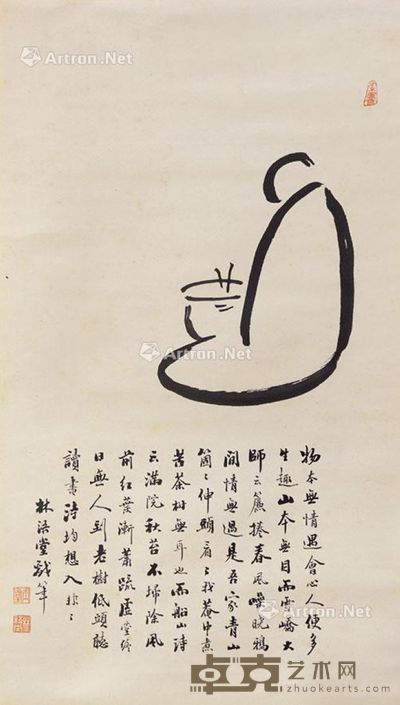 Artron.Net
Artron.Net
Artron.Net
物本無情遇會心人便多
生趣山本無目而雪嶠大
師云簾捲春風啼曉鴉
閒情無過是吾家青山
箇〻伸頭看〻我菴中煮
苦茶樹無耳也而船山詩
云滿院秋苔不掃除風
前紅葉漸蕭疏虛堂終
日無人到老樹低頭聽
讀書詩均想入非〻
林語堂戲筆
Artron.Net
卓克艺术网
www.zhuokearts.com